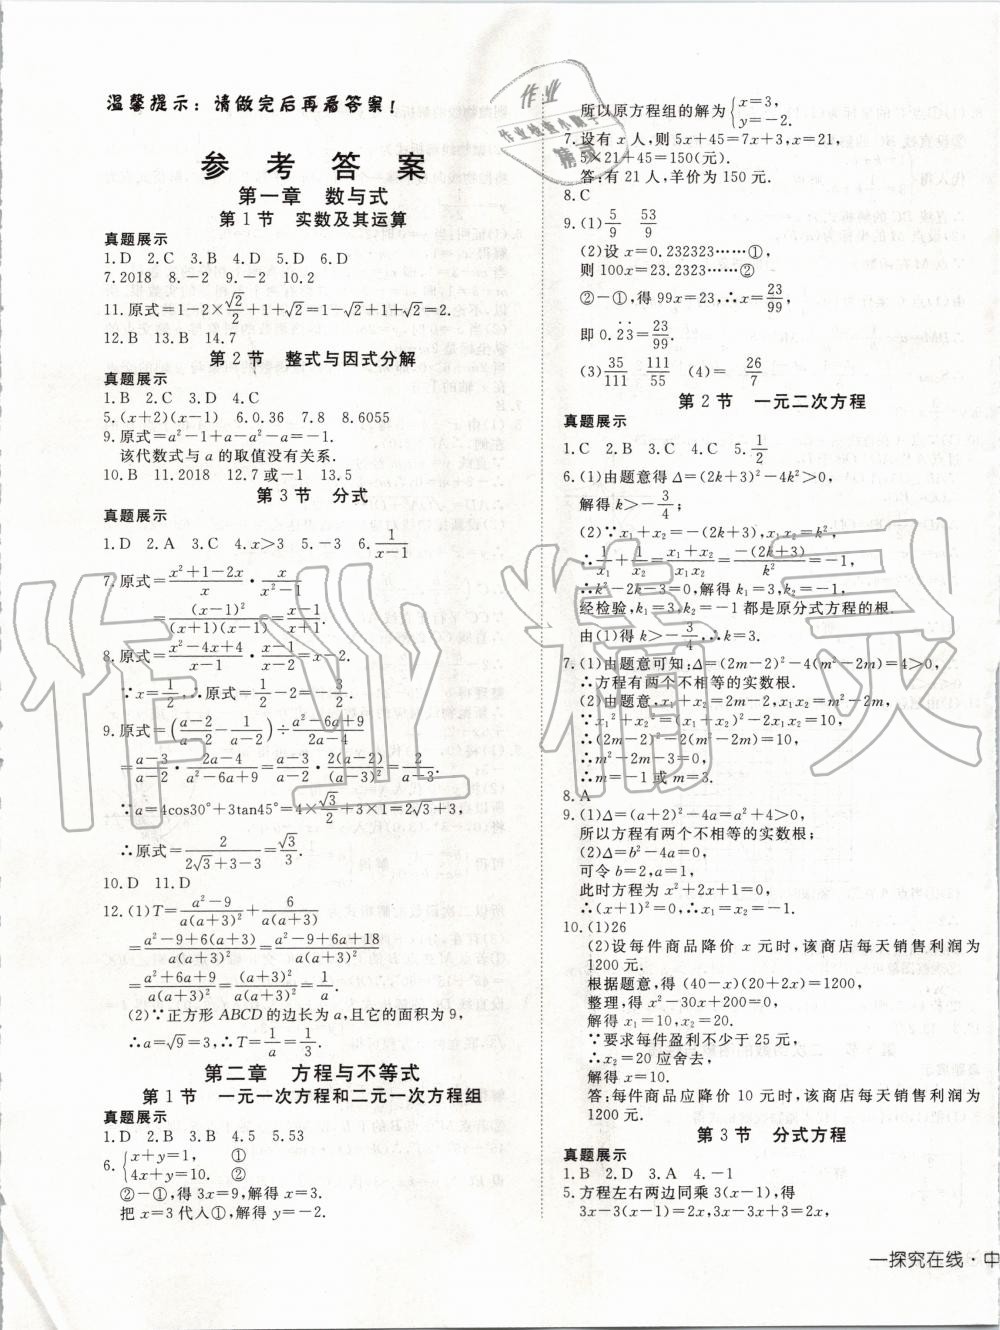 温馨提示：请做完后再看答案！
参 考 答 案
第一章 数与式
第1节 实数及其运算
真题展示
1.D 2.A 3.C 4.D 5.D 6.D
7.2018 8.－2 9.－2 10.2
11.原式=1－2×√2/2+1+√2=1－√2+1+√2=2.
12.B 13.B 14.7
第2节 整式与因式分解
真题展示
1.B 2.C 3.D 4.C
5.(x+2)(x－1) 6.0.36 7.8 8.6055
9.原式=a²－1+a－a²－a=－1.
该代数式与a的取值没有关系.
10.B 11.2018 12.7或－1 13.5
第3节 分式
真题展示
1.D 2.A 3.C 4.x>3 5.－3 6.1/(x－1)
7.原式=(x²+1－2x)/x · x/(x²－1)
=(x－1)²/((x+1)(x－1))=(x－1)/(x+1).
8.原式=(x²－4x+4)/(x－1) · (x－1)/(x－2)=x－2.
∵x=1/2,∴原式=1/2－2=－3/2.
9.原式=((a－2)/(a－2)－1/(a－2))÷(a²－6a+9)/(2a－4)
=(a－3)/(a－2)·(2a－4)/(a²－6a+9)=(a－3)/(a－2)·2(a－2)/(a－3)²=2/(a－3).
∵a=4cos30°+3tan45°=4×√3/2+3×1=2√3+3,
∴原式=2/(2√3+3－3)=√3/3.
10.D 11.D
12.(1)T=(a²－9)/(a(a+3)²)+6/(a(a+3))
=(a²－9+6(a+3))/(a(a+3)²)=(a²－9+6a+18)/(a(a+3)²)
=(a²+6a+9)/(a(a+3)²)=(a+3)²/(a(a+3)²)=1/a.
(2)∵正方形ABCD的边长为a,且它的面积为9,
∴a=√9=3,∴T=1/a=1/3.
第二章 方程与不等式
第1节 一元一次方程和二元一次方程组
真题展示
1.D 2.B 3.B 4.5 5.53
6.{x+y=1, ①
4x+y=10. ②
②－①,得3x=9,解得x=3.
把x=3代入①,解得y=－2.
所以原方程组的解为{x=3,
y=－2.
7.设有x人,则5x+45=7x+3,x=21,
5×21+45=150(元).
答:有21人,羊价为150元.
8.C
9.(1)5/9 53/9
(2)设x=0.232323……①,
则100x=23.2323……②
②－①,得99x=23,∴x=23/99,
即0.2̇3̇=23/99.
(3)35/111 111/55 (4)= 26/7
第2节 一元二次方程
真题展示
1.C 2.B 3.C 4.C 5.1/2
6.(1)由题意得Δ=(2k+3)²－4k²>0,
解得k>－3/4;
(2)∵x₁+x₂=－(2k+3),x₁x₂=k²,
∴1/x₁+1/x₂=(x₁+x₂)/(x₁x₂)=－(2k+3)/k²=－1,
∴k²－2k－3=0,解得k₁=3,k₂=－1,
经检验,k₁=3,k₂=－1都是原分式方程的根.
由(1)得k>－3/4,∴k=3.
7.(1)由题意可知:Δ=(2m－2)²－4(m²－2m)=4>0,
∴方程有两个不相等的实数根.
(2)由题意,x₁+x₂=2m－2,x₁x₂=m²－2m,
∵x₁²+x₂²=(x₁+x₂)²－2x₁x₂=10,
∴(2m－2)²－2(m²－2m)=10,
∴m²－2m－3=0,
∴m=－1或m=3.
8.A
9.(1)Δ=(a+2)²－4a=a²+4>0,
所以方程有两个不相等的实数根;
(2)Δ=b²－4a=0,
可令b=2,a=1,
此时方程为x²+2x+1=0,
∴(x+1)²=0,∴x₁=x₂=－1.
10.(1)26
(2)设每件商品降价x元时,该商店每天销售利润为
1200元.
根据题意,得(40－x)(20+2x)=1200,
整理,得x²－30x+200=0,
解得x₁=10,x₂=20.
∵要求每件盈利不少于25元,
∴x₂=20应舍去,
解得x=10.
答:每件商品应降价10元时,该商店每天销售利润为
1200元.
第3节 分式方程
真题展示
1.B 2.D 3.A 4.－1
5.方程左右两边同乘3(x－1),得
3x－3(x－1)=2x,3x－3x+3=2x,
一探究在线·中
作业精灵